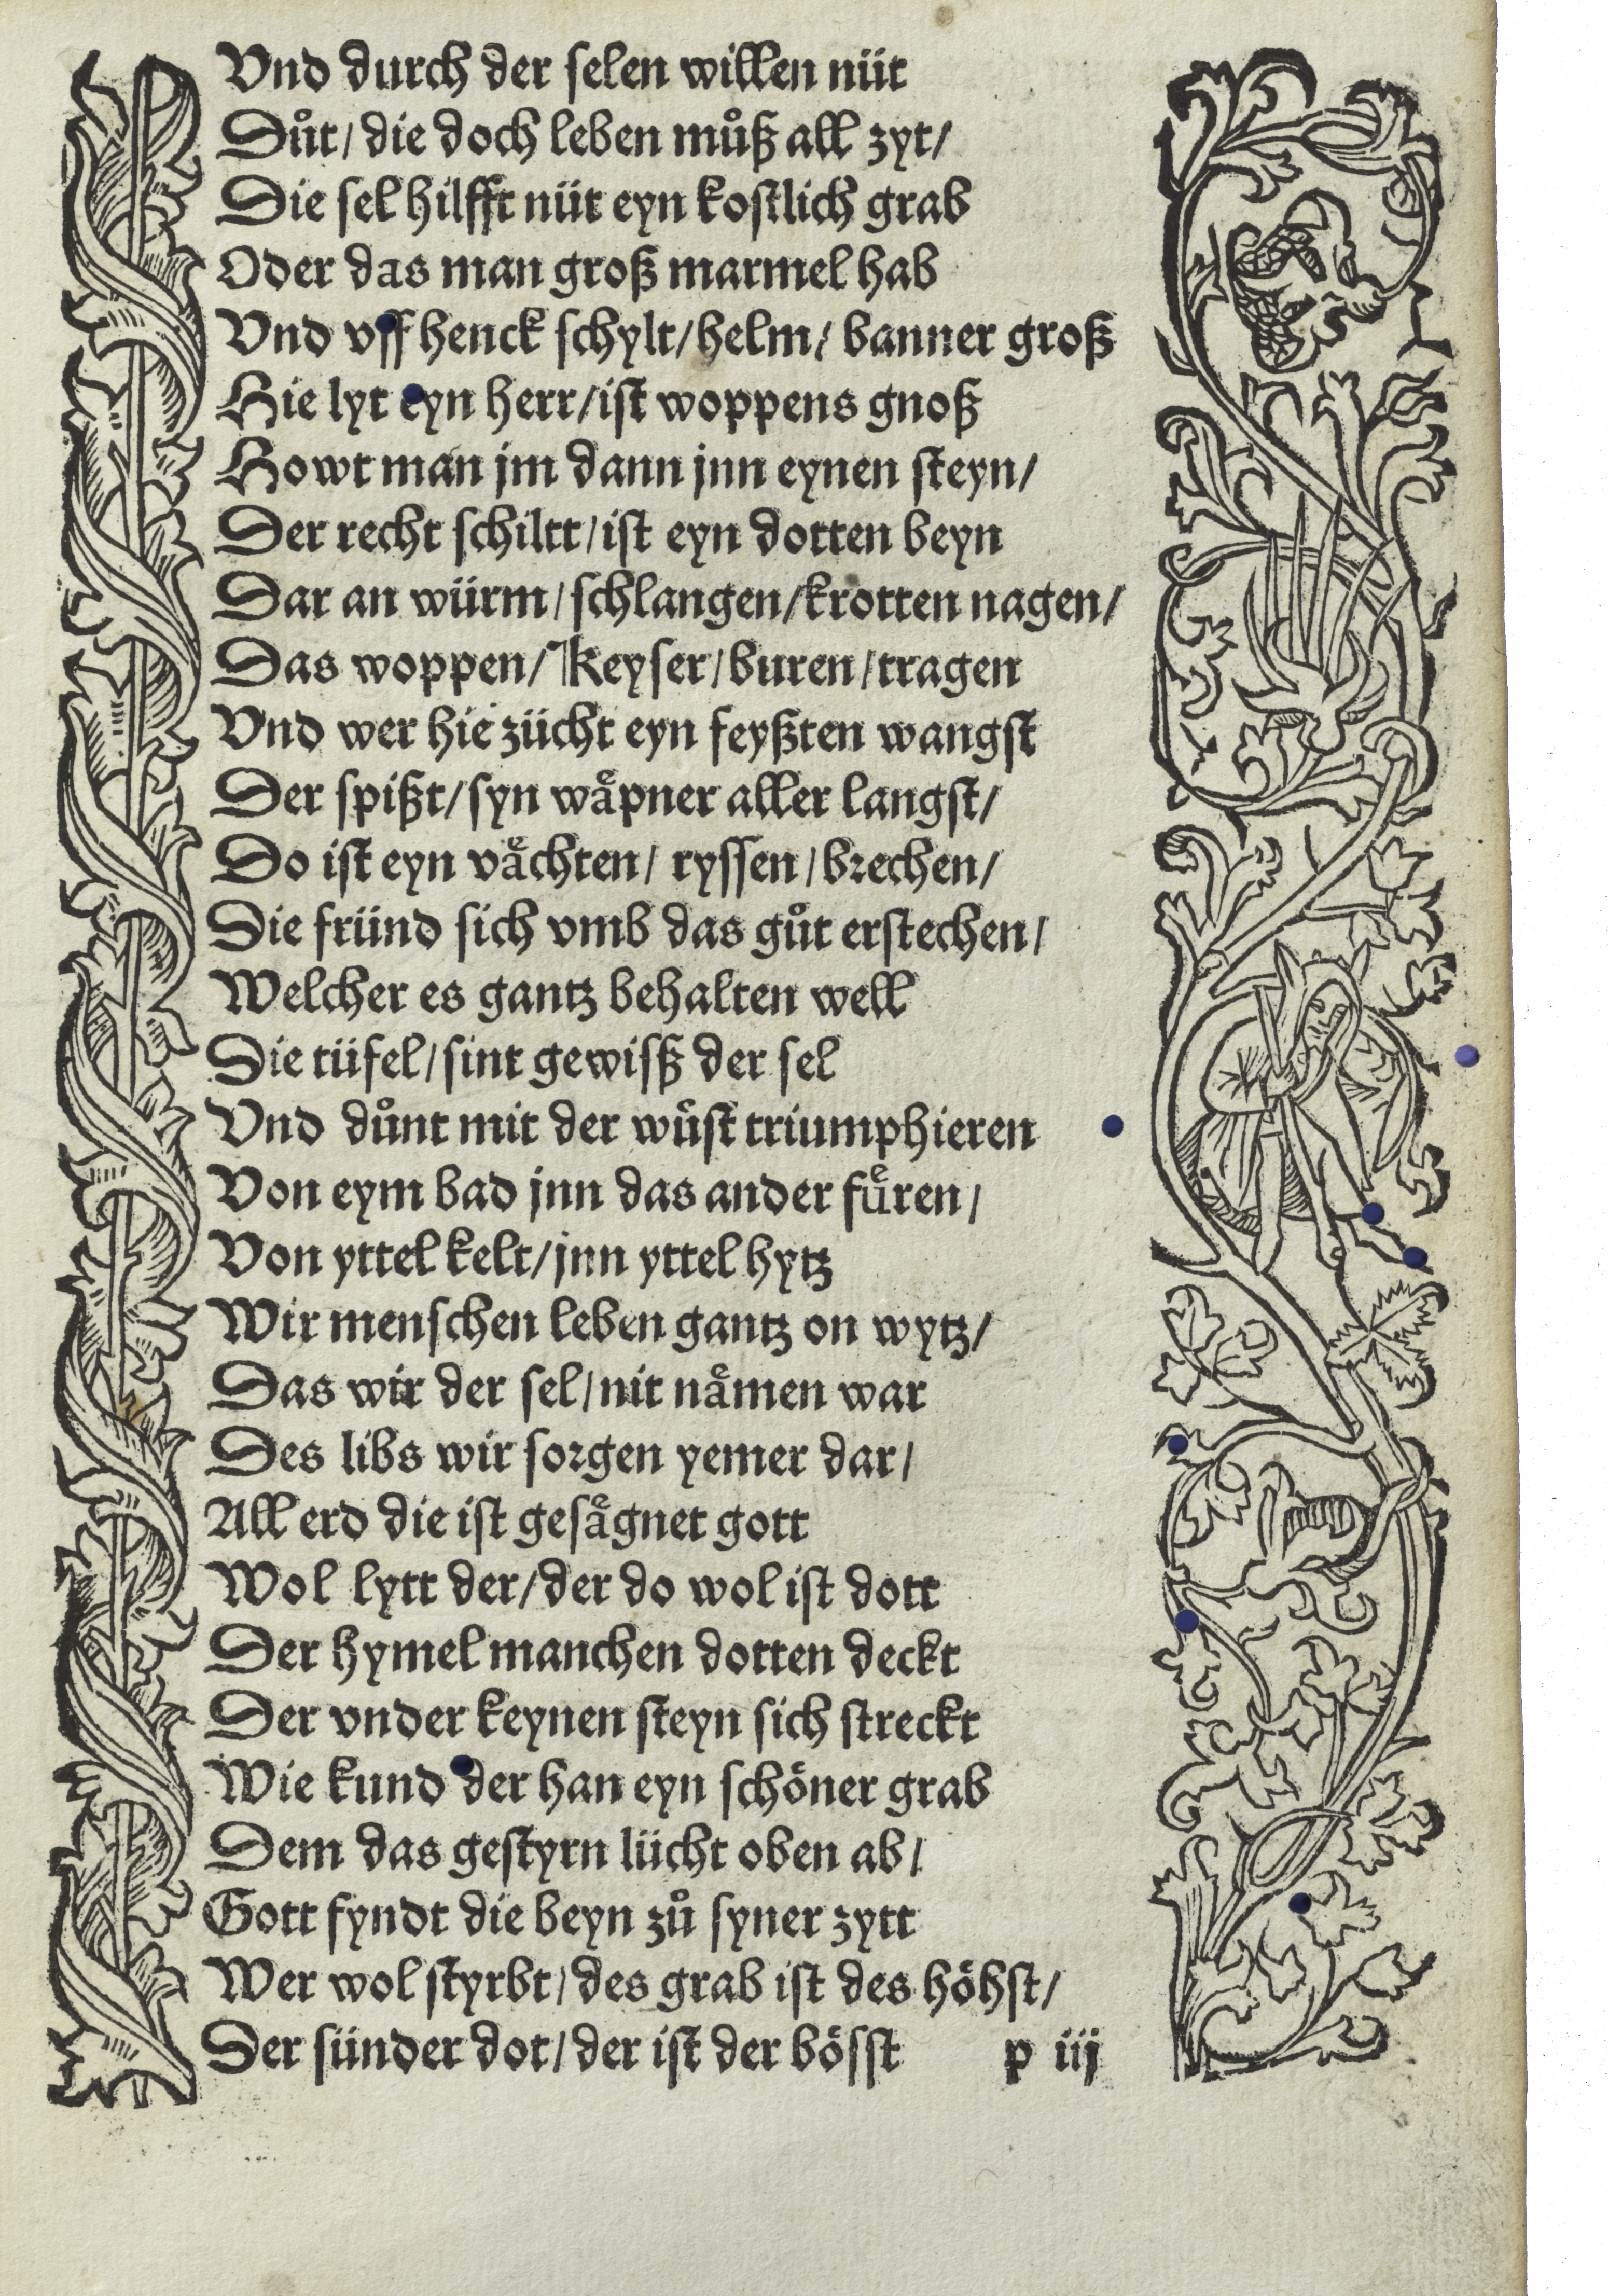 Vnd durch der selen willen nüt
Důt/ die doch leben můß all zyt/
Die sel hilfft nüt eyn kostlich grab
Oder das man groß marmel hab
Vnd vff henck schylt/helm/ banner groß
Hie lyt eyn herr/ist woppens gnoß
Howt man jm dann jnn eynen steyn/
Der recht schiltt/ist eyn dotten beyn
Dar an würm/schlangen/krotten nagen/
Das woppen/ Keyser/buren/tragen
Vnd wer hie zücht eyn feyßten wangst
Der spißt/syn waͤpner aller langst/
Do ist eyn vaͤchten/ ryssen/brechen/
Die fründ sich vmb das gůt erstechen/
Welcher es gantz behalten well
Die tüfel/sint gewisß der sel
Vnd důnt mit der wuͤst triumphieren
Von eym bad jnn das ander fuͤren/
Von yttel kelt/jnn yttel hytz
Wir menschen leben gantz on wytz/
Das wir der sel/nit naͤmen war
Des libs wir sorgen yemer dar/
All erd die ist gesaͤgnet gott
Wol lytt der/der do wol ist dott
Der hymel manchen dotten deckt
Der vnder keynen steyn sich streckt
Wie kund der han eyn schöner grab
Dem das gestyrn lücht oben ab/
Gott fyndt die beyn zů syner zytt
Wer wol styrbt/des grab ist des höhst/
Der sünder dot/der ist der bösst p iij